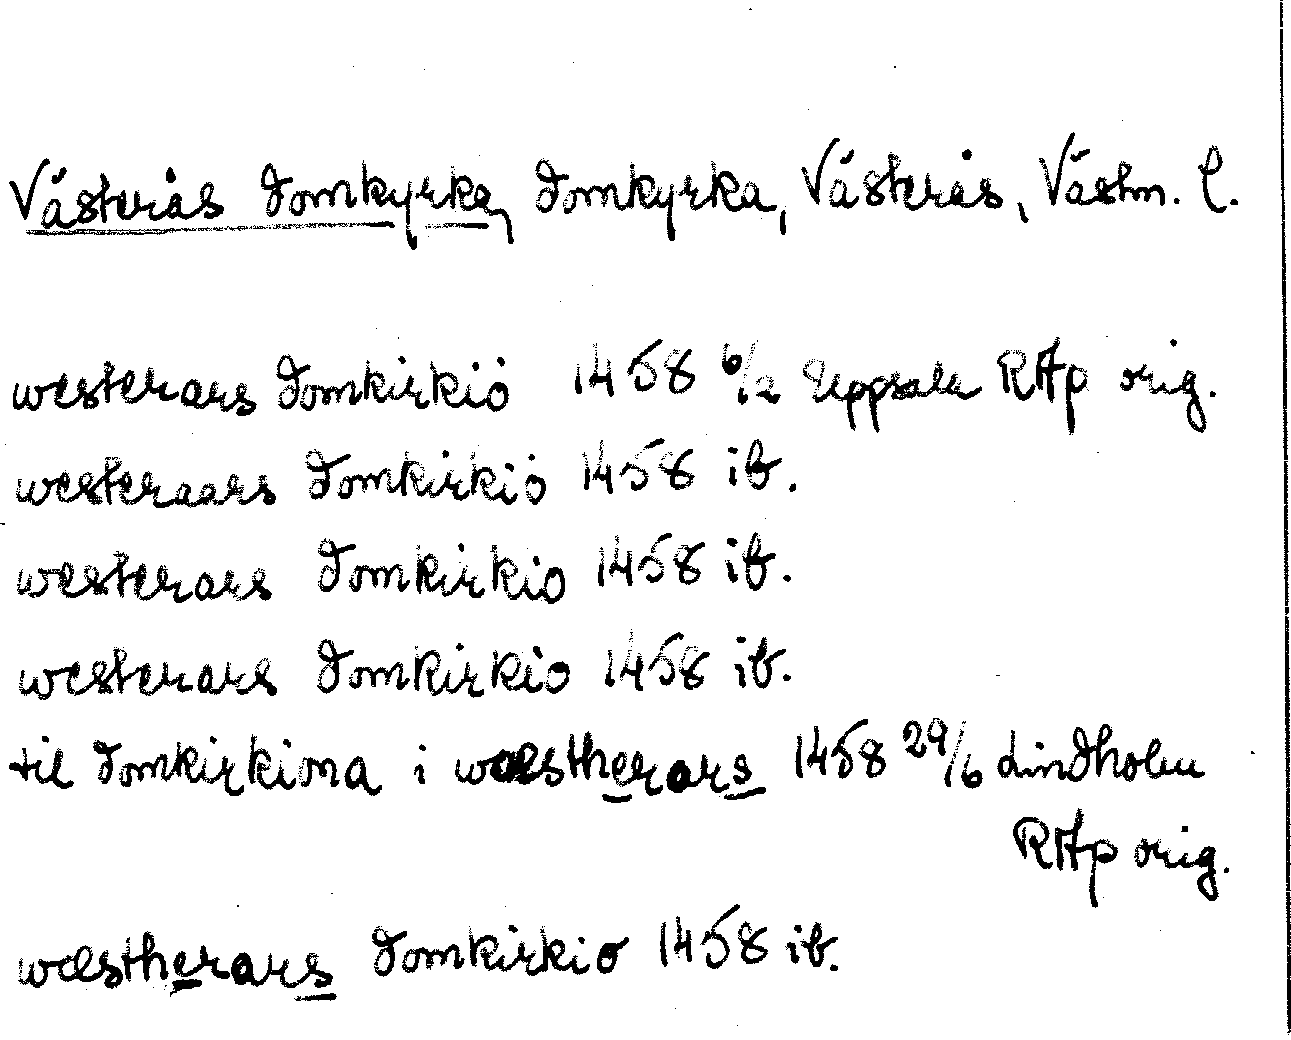 Västerås domkyrka, domkyrka, Västerås, Västm. l.
westerars domkirkiö 1458 6/2 Uppsala RAp orig.
westeraars domkirkiö 1458 ib.
westerars domkirkio 1458 ib.
westerars domkirkio 1458 ib.
til domkirkiona i wæstherars 1458 29/6 Lindholm
RAp orig.
wæstherars domkirkio 1458 ib.